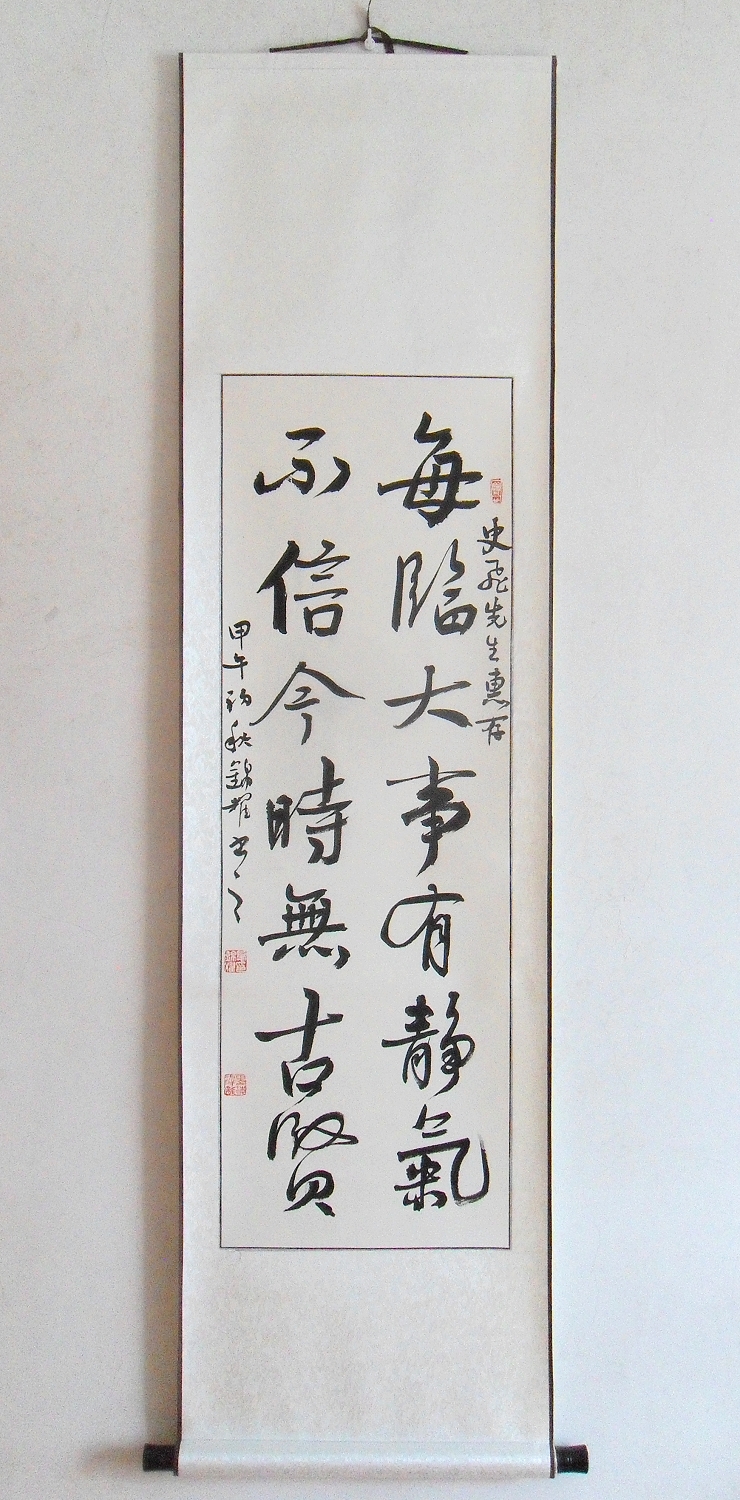 史飛先生惠存
每臨大事有靜氣
不信今時無古賢
甲午初秋錦耀书之